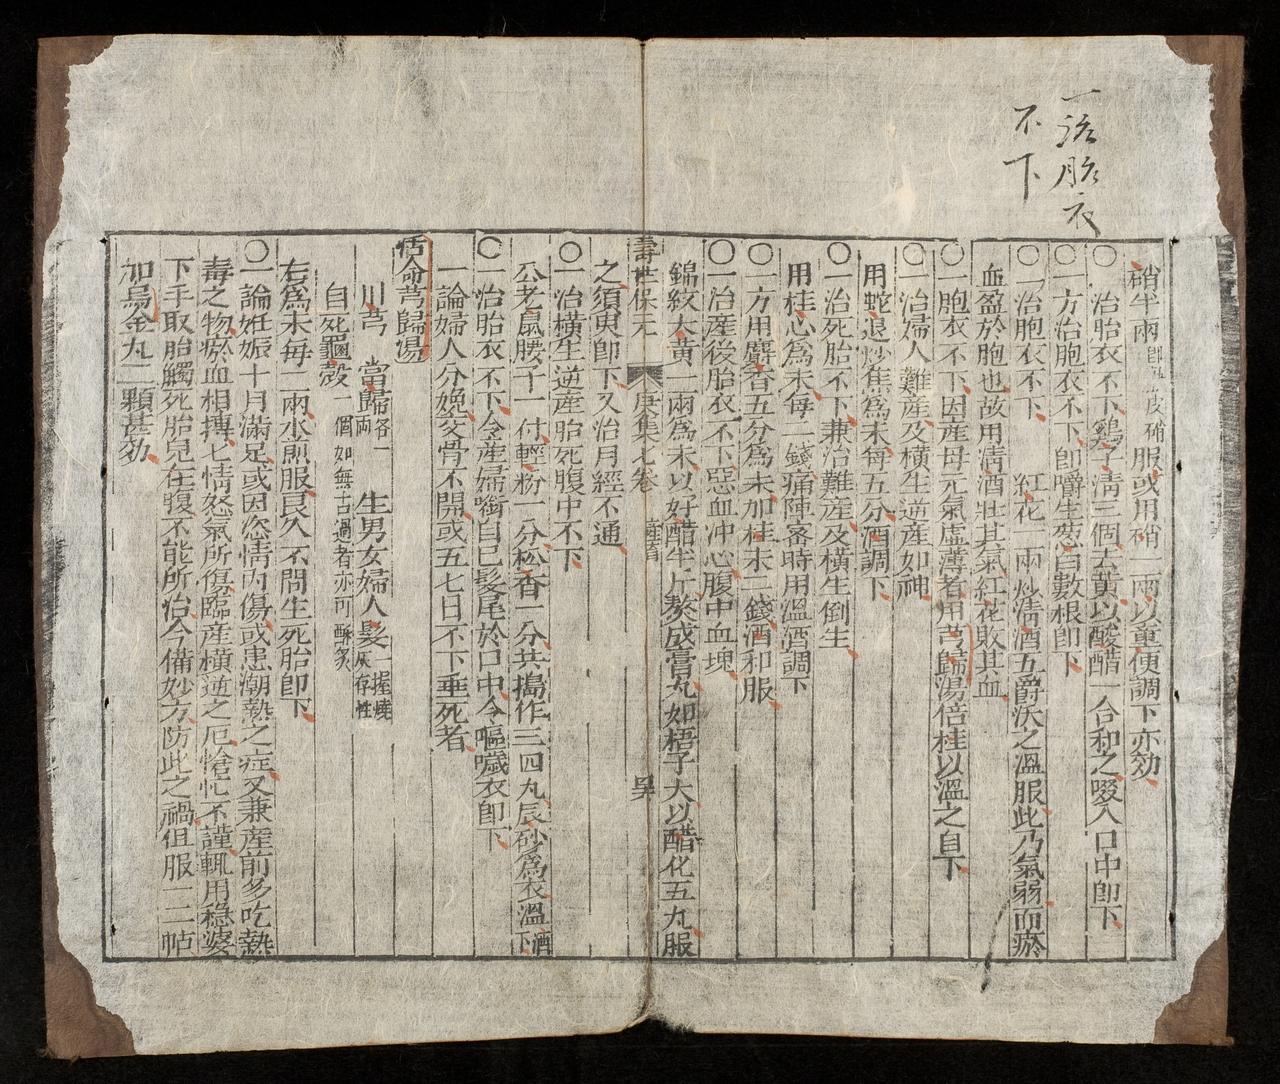 一治胎衣
不下
硝半兩卽皮硝服或用硝一兩以童便調下亦効
〇治胎衣不下鷄子淸三個去黃以酸醋一合和之啜入口中卽下
〇一方治胞衣不下卽嚼生葱白數根卽下
〇一治胞衣不下 紅花一兩炒淸酒五爵沃之溫服此乃氣弱而瘀
血盈於胞也故用淸酒壯其氣紅花敗其血
〇一胞衣不下因產母元氣虛薄者用芎歸湯倍桂以溫之自下
〇一治婦人難產及橫生逆產如神
用蛇退炒焦爲末每五分酒調下
〇一治死胎不下兼治難產及橫生倒生
用桂心爲末每二錢痛陣密時用溫酒調下
〇一方用麝香五分爲末加桂末二錢酒和服
〇一治產後胎衣不下惡血冲心腹中血塊
錦紋大黃一兩爲末以好醋半斤熬成膏丸如梧子大以醋化五九服
壽世保元 庚集七卷 產育 吴
之須臾卽下又治月經不通
〇一治橫生逆產胎死腹中不下
公老鼠腰子一付輕粉一分松香一分共搗作三四丸辰砂爲衣溫酒下
〇一治胎衣不下令產婦嚼自已髮尾於口中令嘔噦衣卽下
一論婦人分娩交骨不開或五七日不下垂死者
活命芎歸湯
川芎 當歸各一兩 生男女婦人髮一握燒灰存性
自死龜殼一個如無占過者亦可酥炙
右爲末每一兩水煎服良久不問生死胎卽下
〇一論姙娠十月滿足或因恣情內傷或患潮熱之症又兼產前多吃熱
毒之物瘀血相摶七情怒氣所傷臨產橫逆之厄愴忙不謹輒用穩婆
下手取胎觸死胎兒在腹不能所治今備妙方防此之禍但服一二帖
加烏金丸二顆甚効